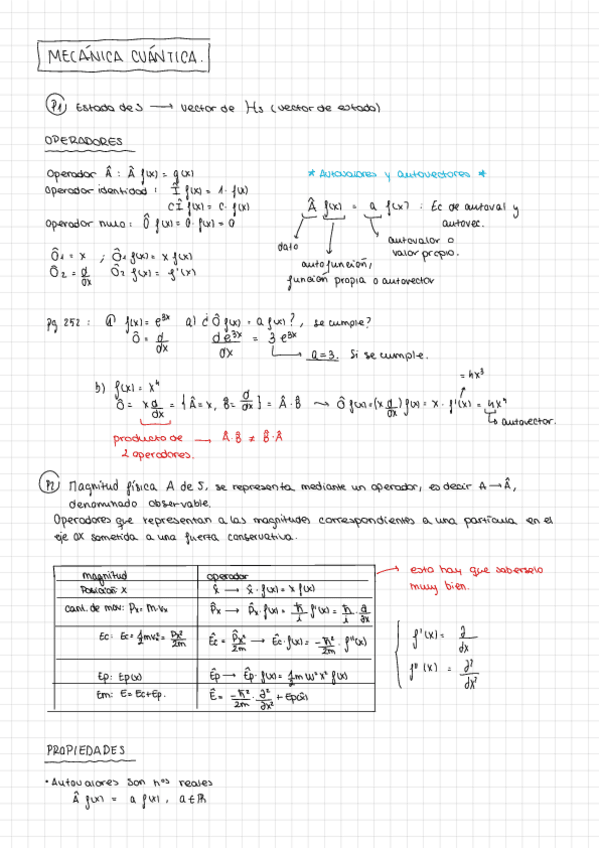 MECÁNICA CUÁNTICA.
P1 Estado de S → vector de Hs (vector de estado)
OPERADORES
Operador Â : Â f(x) = g(x)
Operador identidad : Î f(x) = 1 · f(x)
cÎ f(x) = c · f(x)
Operador nulo : Ô f(x) = 0 · f(x) = 0
Ô1 = x ; Ô1 f(x) = x f(x)
Ô2 = d/dx Ô2 f(x) = f'(x)
* Autovalores y autovectores *
Â f(x) = a f(x) : Ec de autoval y autovec.
dato
autofunción, función propia o autovector
autovalor o valor propio.
Pg 252 : 1) f(x) = e^3x a) ¿Ô f(x) = a f(x)?, se cumple?
Ô = d/dx de^3x/dx = 3 e^3x
→ a=3. Si se cumple.
b) f(x) = x⁴
= 4x³
Ô = x d/dx = { Â = x, B̂ = d/dx } = Â · B̂ → Ô f(x) = (x d/dx) f(x) = x · f'(x) = 4x⁴
→ autovector.
producto de 2 operadores. → Â · B̂ ≠ B̂ · Â
P2 Magnitud física A de S, se representa mediante un operador, es decir A → Â,
denominado observable.
Operadores que representan a las magnitudes correspondientes a una partícula en el
eje OX sometida a una fuerza conservativa.
magnitud operador
Posición: X x̂ → x̂ · f(x) = x f(x)
cant. de mov: Px = m·vx P̂x → P̂x · f(x) = ħ/i f'(x) = ħ/i · ∂/∂x
Ec: Ec = ½mvx² = Px²/2m Êc = P̂x²/2m → Êc · f(x) = -ħ²/2m · f''(x)
Ep: Ep(x) Êp → Êp · f(x) = ½ m ω² x² f(x)
Em: E = Ec + Ep. Ê = -ħ²/2m · ∂²/∂x² + Ep(x̂)
→ esto hay que saberselo
muy bien.
f'(x) = ∂/dx
f''(x) = ∂²/dx²
PROPIEDADES
· Autovalores son nos reales
Â f(x) = a f(x), a ∈ ℝ